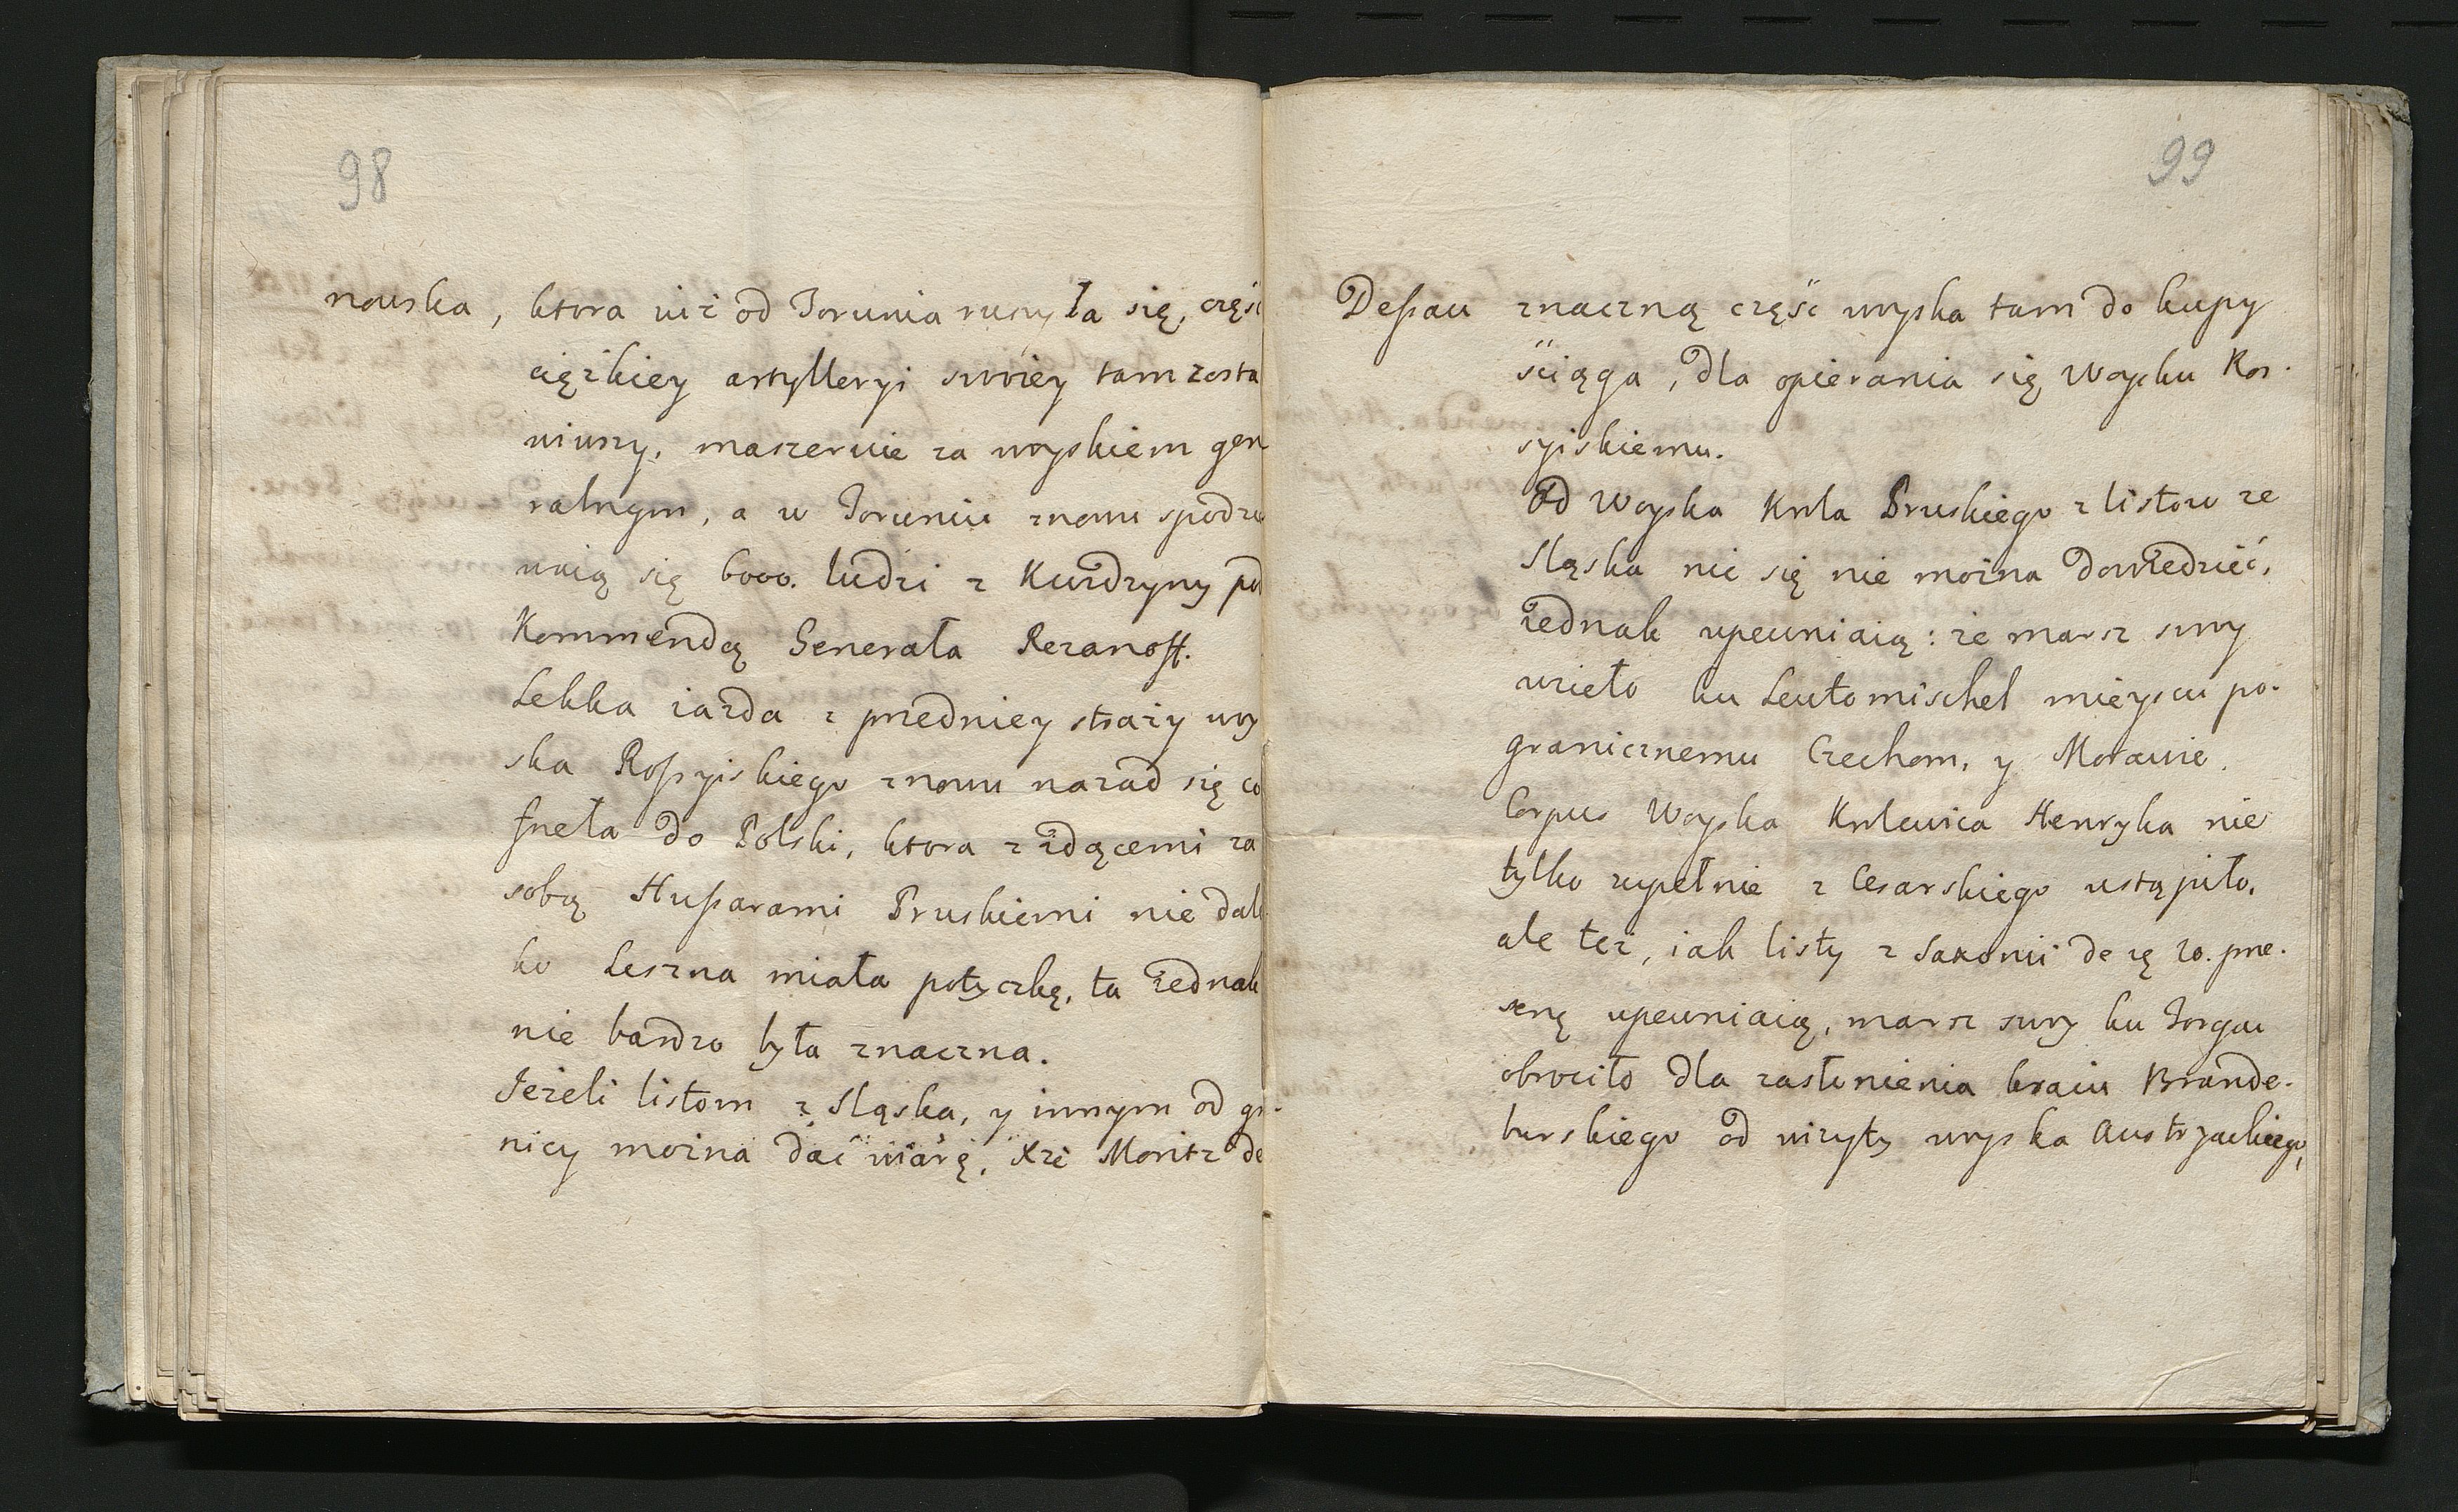 98
nowska, ktora iuż od Torunia ruszyła się, częśc
ciężkiey artylleryi swoiey tam zosta
wiwszy, maszeruie za woyskiem gen
ralnym, a w Toruniu znowu spodzie
waią się 6000. ludzi z Kurdzyny pod
Kommendą Generała Rezanoff.
Lekka iazda z przedniey straży woy
ska Roßyiskiego znowu nazad się co
fneła do Polski, ktora z idącemi za
sobą Hußarami Pruskiemi nie dale
ko Leszna miała potyczkę, ta iednak
nie bardzo była znaczna.
Jeżeli listom z Sląska, y innym od gra
nicy można dać wiarę, Xże Moritz de
99
Deßau znaczną część woyska tam do kupy
ściąga, dla opierania się Woysku Ros-
syiskiemu.
Od Woyska Krola Pruskiego z listow ze
Sląska nic się nie można dowiedzieć,
iednak upewniaią: że marsz swoy
wzieło ku Leutomischel mieyscu po-
granicznemu Czechom, y Morawie.
Corpus Woyska Krolewica Henryka nie
tylko zupełnie z Cesarskiego ustąpiło,
ale też, iak listy z Saxonii de 20. prze-
szną upewniaią, marsz swoy ku Torgau
obrociło dla zasłonienia kraiu Brande-
burskiego od wizyty woyska Austryackiego,